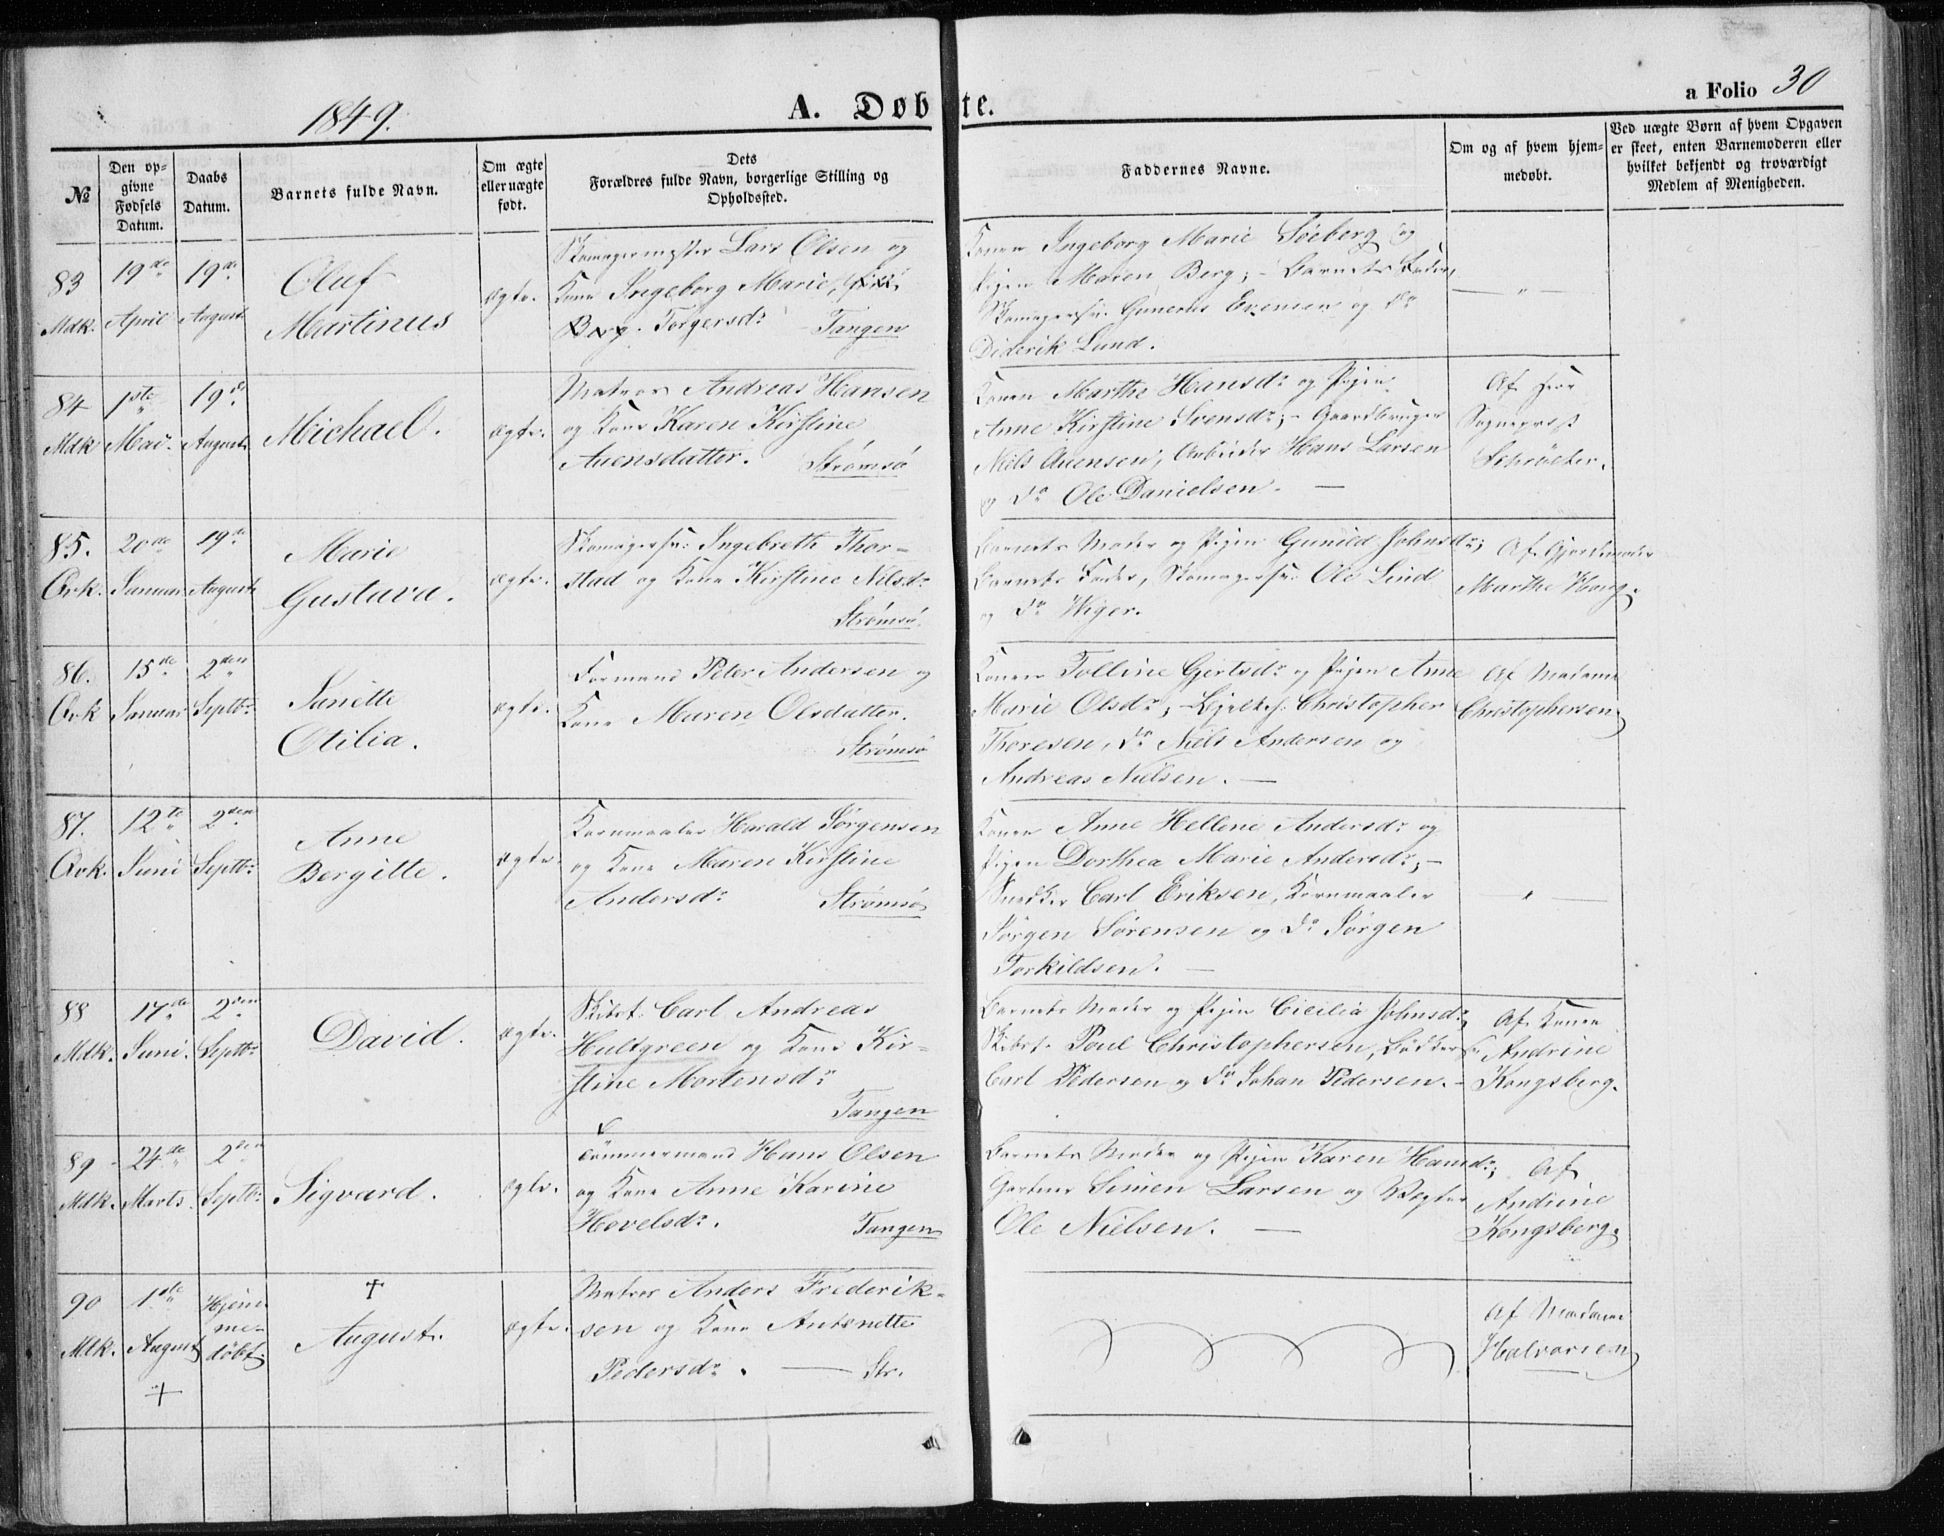 1849.
A. Døbte.
a Folio 30
№
Den opgivne Fødsels Datum.
Daabs Datum.
Barnets fulde Navn.
Om ægte eller uægte født.
Dets Forældres fulde Navn, borgerlige Stilling og Opholdssted.
Faddernes Navne.
Om og af hvem hjemmedøbt.
Ved uægte Børn af hvem Opgaven er skeet, enten Barnemoderen eller hvilket bekjendt og troværdigt Medlem af Menigheden.
83 Mdk.
19de April
19de August
Oluf
Martinus
ægte.
Skomagermester Lars Olsen og
Kone Ingeborg Marie
Berg. Torgersdr Tangen
Konen Ingeborg Marie Søeberg og
Pigen Maren Berg; - Barnets Fader,
Skomagersv. Gunerius Evensen og do
Diderik Lund.
— " —
84 Mdk
1ste Mai.
19de August
Michael.
ægte.
Matros Andreas Hansen
og Kone Karen Kirstine
Auensdatter. Strømsø
Konen Marthe Hansdr og Pigen
Anne Kirstine Svensdr; - Gaardbruger
Niels Auensen, Arbeider Hans Larsen
og do Ole Danielsen. —
Af Herr
Sognepræst
Schrøeter.
85. Qvk.
20de Januar
19de August
Marie
Gustava.
ægte.
Skomagersv. Ingebreth Thor-
stad og Kone Kirstine Nilsdr
Strømsø.
Barnets Moder og Pigen Gunild Johnsdr;
Barnets Fader, Skomagersv. Ole Lind
og do Wiger.
Af Gjordemoder
Marthe Haug.
86. Qvk
15de Januar
2den Septbr
Janette
Otilia.
ægte.
Formand Peter Andersen og
Kone Maren Olsdatter.
Strømsø
Konen Tolline Gjertsdr og Pigen Anne
Marie Olsdr; - Christopher
Thoresen, do Niels Andersen og
Andreas Nielsen. —
Af Madame
Christophersen
87. Qvk.
12te Juni
2den Septbr
Anne
Bergitte.
ægte.
Kornmaaler Harald Jørgensen
og Kone Maren Kirstine
Andersdr Strømsø
Konen Anne Hellene Andersdr og
Pigen Dorthea Marie Andersdr; —
Snedker Carl Eriksen, Kornmaaler
Jørgen Sørensen og do Jørgen
Torkildsen. —
— " —
88 Mdk.
17de Juni.
2den Septbr
David.
ægte.
Skibst. Carl Andreas
Hultgreen og Kone Kir-
stine Mortensdr
Tangen
Barnets Moder og Pigen Cicilia Johnsdr,
Skibst. Poul Christophersen, Bødkersv.
Carl Pedersen og do Johan Pedersen. —
Af Konen
Andrine
Kongsberg.
89 Mdk.
24de Marts.
2den Septbr
Sigvard.
ægte.
Tømmermand Hans Olsen
og Kone Anne Karine
Hovelsdr. Tangen
Barnets Moder og Pigen Karen Hansdr;
Gartner Simen Larsen og Vægter
Ole Nielsen. —
Af
Andrine
Kongsberg.
90 Mdk.
1ste August +
Hjemmedøbt.
+
August.
ægte.
Matros Anders Frederik-
sen og Kone Antonette
Pedersdr. — Str.
Af Madame
Halvorsen